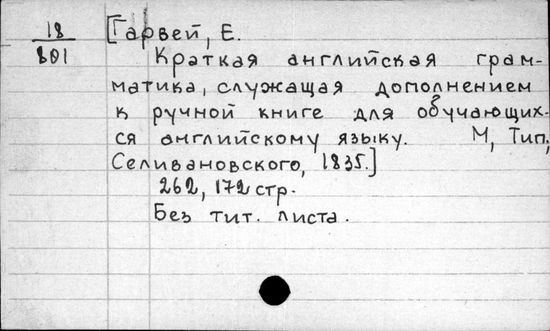 18
801
[Гарвей, Е.
Краткая английская грам-
матика, служащая дополнением
к ручной книге для обучающих-
ся английскому языку. М, Тип,
Селивановского, 1835.]
262, 172 стр.
Без тит. листа.